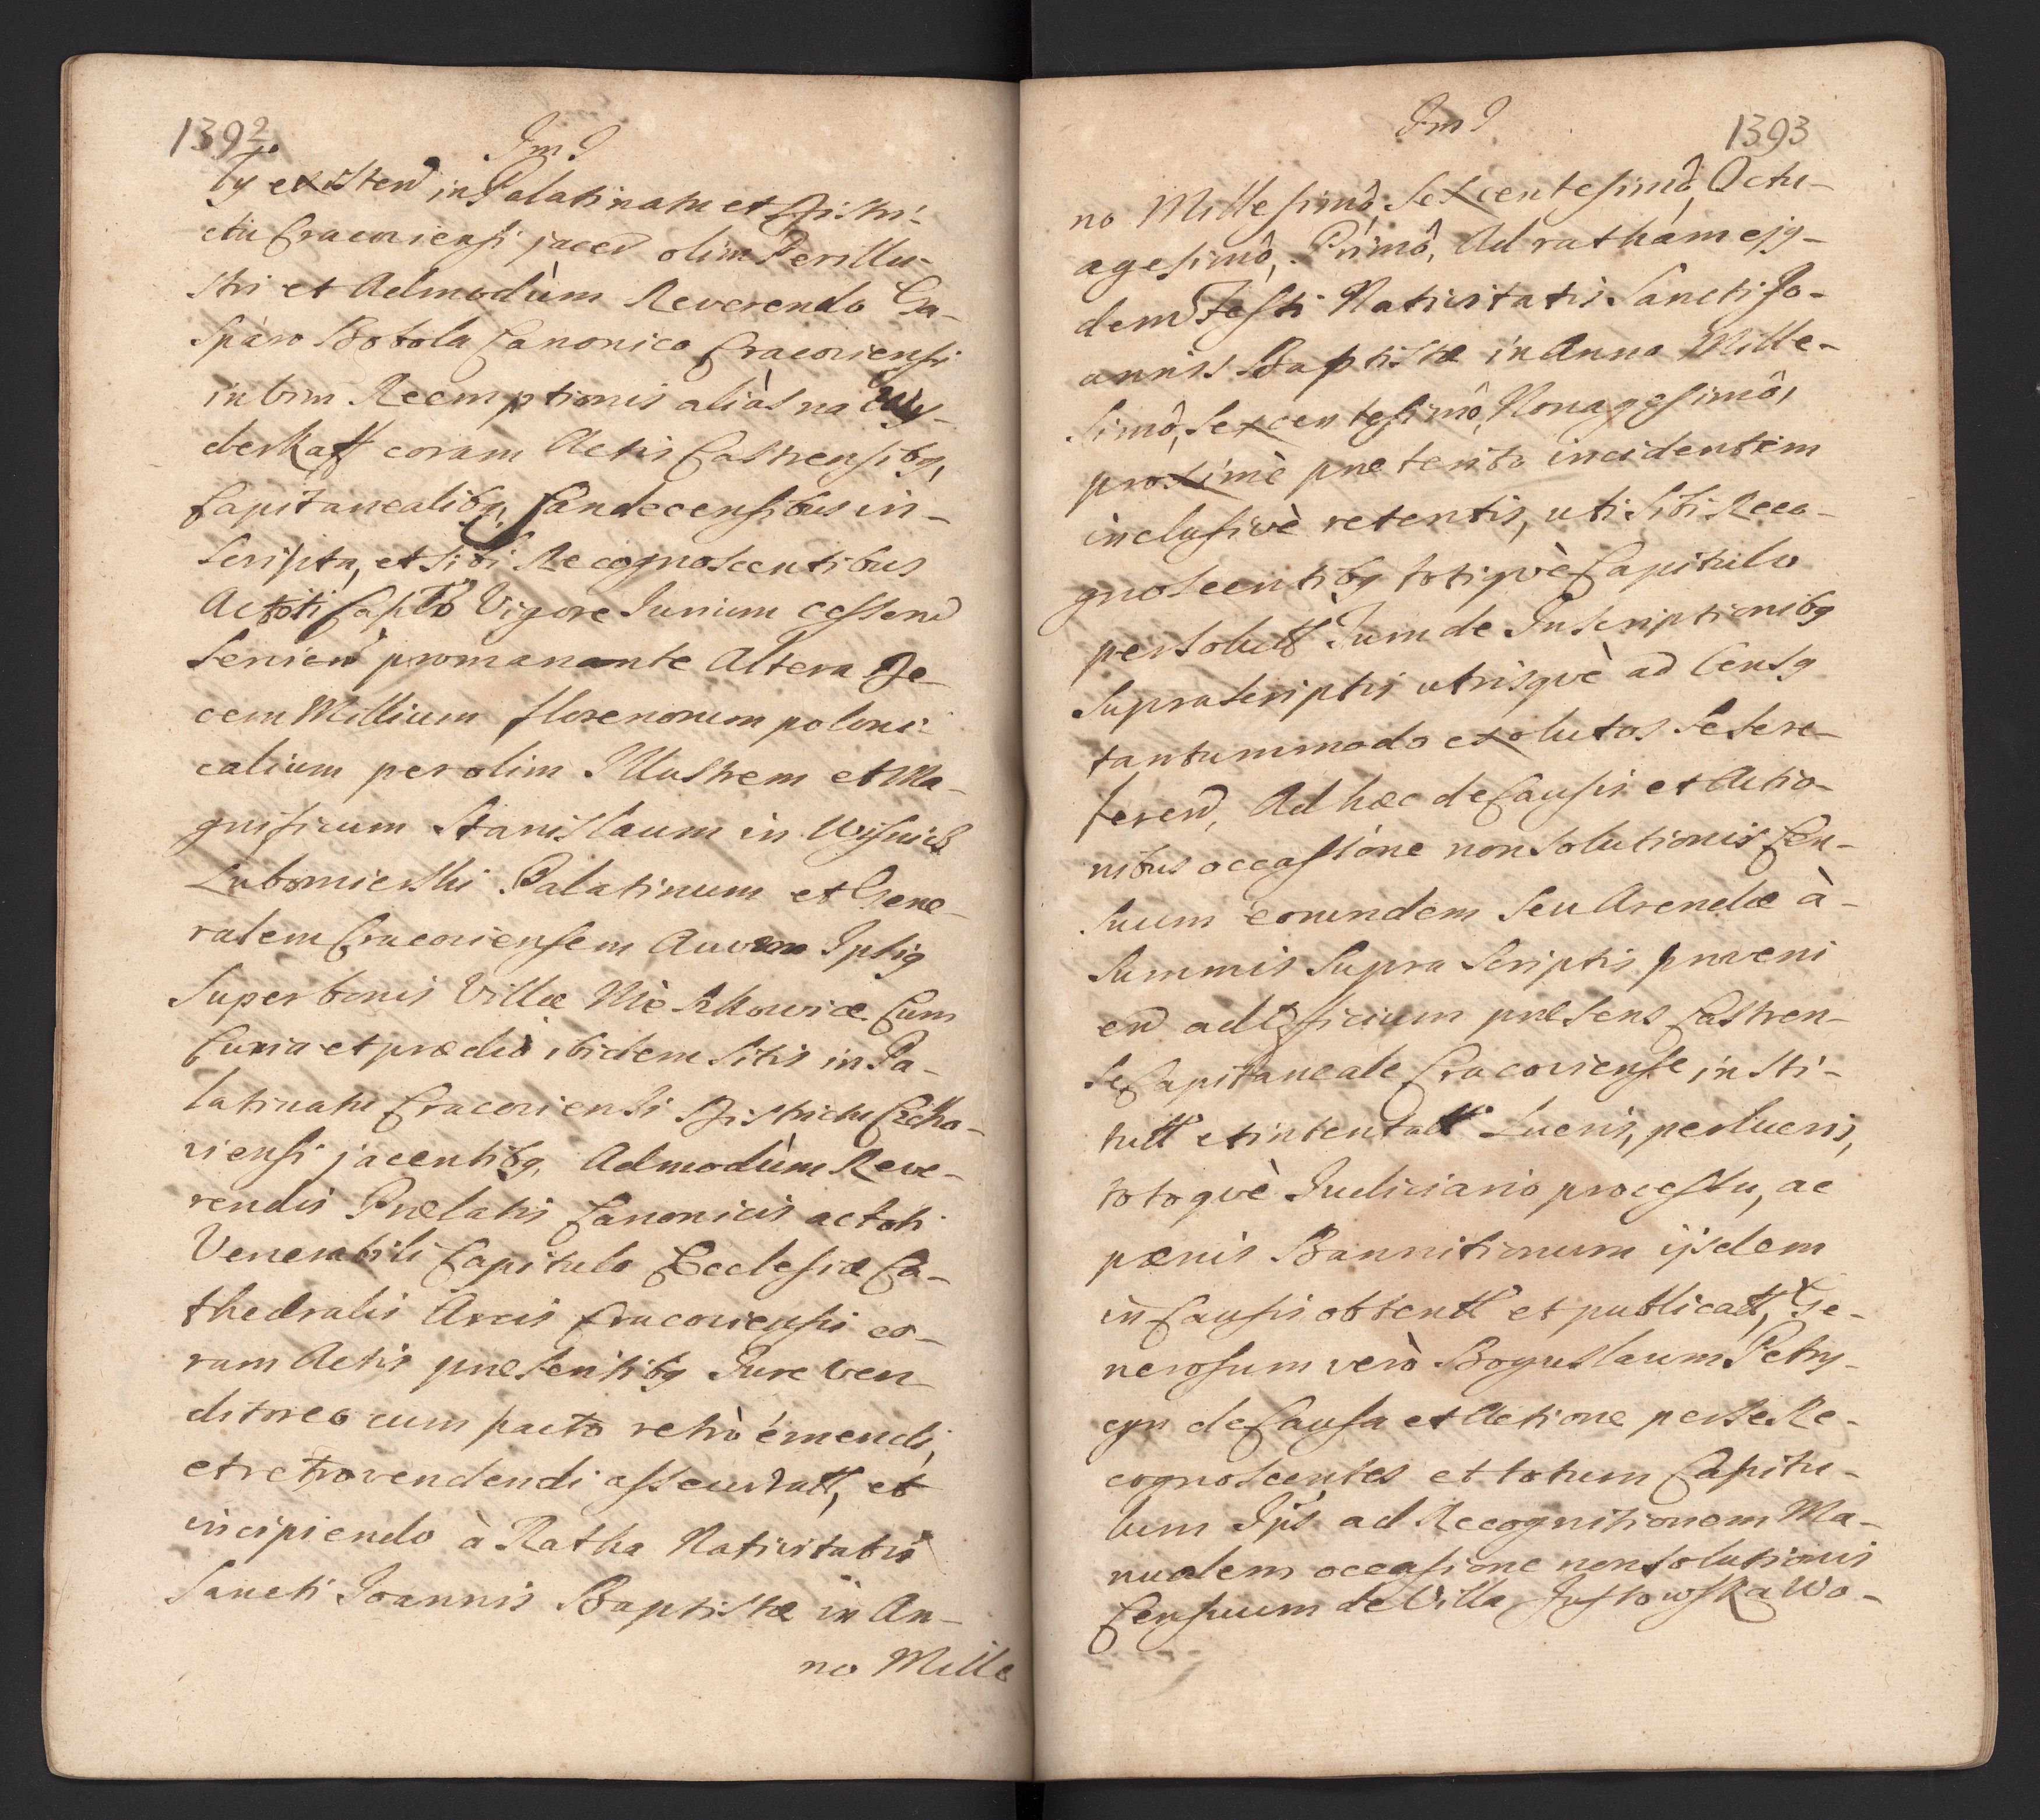 1392
Im I
ty existen in Palatinatu et Distri-
ctu Cracoviensi jacen olim Perillu-
stri et Admodùm Reverendo Ga-
sparo Botola Canonico Cracoviensi
in vim Reemptionis aliàs na Wy-
derkaff coram Actis Castrensibq,
Capitanealibq Sandecensibus in-
scripta, et sibi Recognoscentibus
ac toti Caplo Vigore Jurium cessen
servien promanante Altera De-
cem Millium florenorum poloni-
calium per olim Illustrem et Ma-
gnificum Stanislaum in Wisnicz
Lubomierski Palatinum et Gene-
ralem Cracoviensem Ipsiq
Super bonis Villæ Cum
Curia et prædiô ibidem sitis in Pa-
latinatu Cracoviensi Districtu
viensi jacentibq, Admodùm Reve-
rendis Prælatis Canonicis ac toti
Venerabili Capitulo Ecclesiæ Ca-
thedralis Arcis Cracoviensis co-
ram Actis præsentibq Jure ven-
ditoreo cum pacto retrò émendi,
et retrovendendi assecuratt, et
incipiendo à Ratha Nativitatis
Sancti Joannis Baptistæ in An-
no Mille
Im I
1393
no Millesimô, Sexcentesimô, Octu-
agesimô, Primô, Ad rathám ejq-
dem Festi Nativitatis Sancti Jo-
annis Baptistæ in Anno Mille-
simô, Sexcentesimô, Nonagesimô,
proximè præterito incidentem
inclusivè retentis, uti sibi Reco-
gnoscentibq totiquè Capitulo
persolutt Jurnde Inscriptionibq
suprascriptis utrisquè ad Censq
tantummodo exolutos se sere-
feren, Ad hæc de Causis et Actio-
nibus occassióne non solutionis Cen-
suum eorundem seu Arendæ à-
Summis supra scriptis proveni
en ad Officium præsens Castren-
se Capitaneale Cracoviense insti-
tutt et intentatt Lucris, perlucris,
totoquè Judiciario processu, ac
pœnis Bannitionum ijsdem
in Causis obtentt et publicatt, Ge-
nerosum verò Boguslaum Petry-
cyn de Causa et Actione per se Re-
cognoscentes et totum Capitu-
lum Ips ad Recognitionem Ma-
nualem occasione non solutionis
Censuum de Villa Justowska Wo-